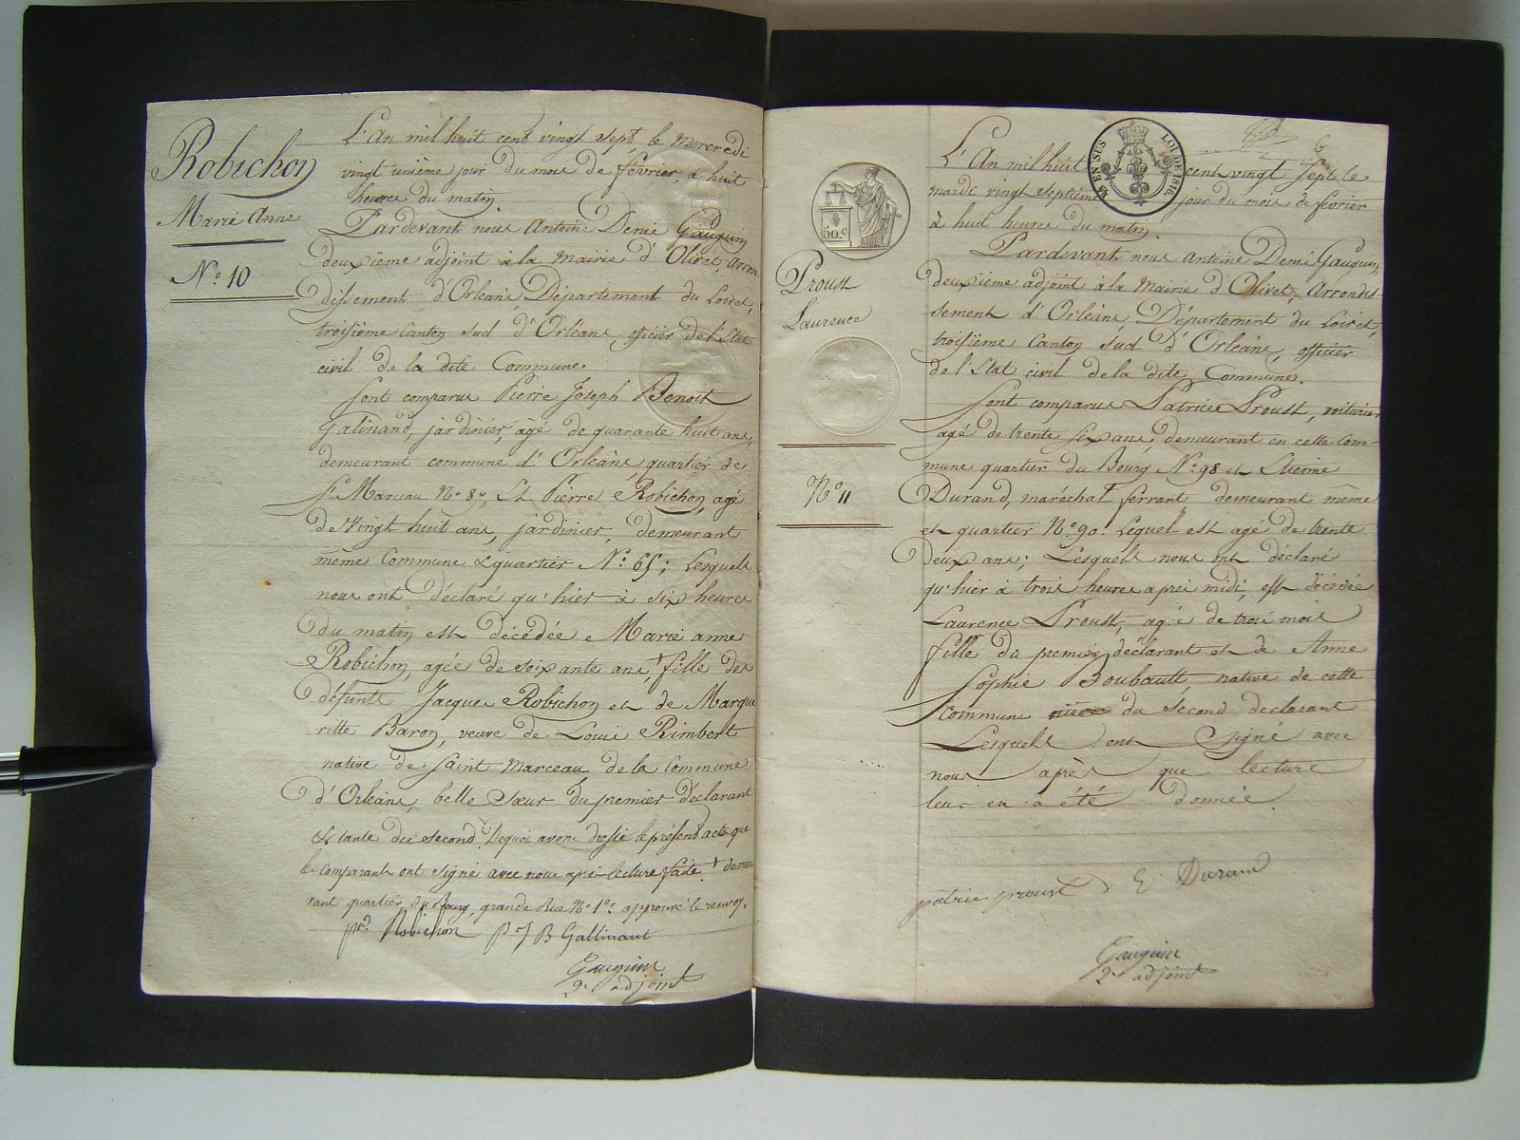 Robichon
Marie Anne
N° 10
L'An mil huit cent vingt sept, le Mercredi
vingt unième jour du mois de février, à huit
heures du matin.
Pardevant nous Antoine Denis Gauguin
deuxième adjoint à la Mairie d'Olivet, Arron
dissement d'Orléans, Département du Loiret,
troisième Canton sud d'Orléans, officier de l'Etat
civil de la dite Commune.
Sont comparus Pierre Joseph Benoit
Galinand, jardinier, agé de quarante huit ans,
demeurant commune d'Orléans quartier de
St Marceau N° 8, Et Pierre Robichon, agé
de Vingt huit ans, jardinier, demeurant
même Commune & quartier N° 65; Lesquels
nous ont déclaré qu'hier à six heures
du matin est décédée Marie anne
Robichon, agée de soixante ans, + fille de
défunts Jacques Robichon et de Margue
ritte Baron, veuve de Louis Rimbert
native de Saint Marceau de la Commune
d'Orléans, belle Sœur du premier déclarant
Et tante du second. Dequoi avons dressé le présend acte que
les Comparants ont signé avec nous après lecture faite. + demeu
rant quartier du Bourg, grande Rue N° 1er approuvé le renvoy.
pre Robichon P J B Gallinant
Gauguin
2e adjoint
60 c
LOI DE 1816
L'An mil huit cent vingt Sept le
mardi vingt septième jour du mois de février
à huit heures du matin.
Pardevant nous Antoine Denis Gauguin,
deuxième adjoint à la Mairie d'Olivet, Arrondis
sement d'Orléans Département du Loiret,
troisième Canton Sud d'Orléans, officier
de l'Etat civil de la dite Commune.
Proust
Laurence
N° 11
Sont comparus Patrice Proust, voiturier
agé de trente six ans, demeurant en cette com-
mune quartier du Bourg N° 98 et Etienne
Durand, maréchal ferrant demeurant même
et quartier N° 90. Lequel est agé de trente
deux ans; Lesquels nous ont déclaré
qu'hier à trois heures après midi, est décédée
Laurence Proust, agé de trois mois
fille du premier déclarant et de Anne
Sophie Boubault native de cette
Commune nièce du Second déclarant
Lesquels ont Signé avec
nous après que lecture
leur en a été donnée.
patrice proust E Durand
Gauguin
2e adjoint